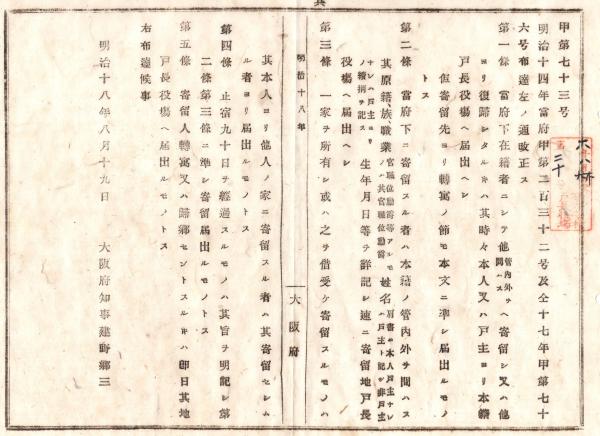 甲第七十三号
明治十四年當府甲第二百三十二号及仝十七年甲第七十
六号布達左ノ通改正ス
第一條 當府下在籍者ニシテ他管内外ヲ問ハスヘ寄留シ又ハ他
ヨリ復歸シタルキハ其時々本人又ハ戸主ヨリ本籍
戸長役塲ヘ届出ヘシ
但寄留先ヨリ轉寓ノ節モ本文ニ準シ届出ルモノ
トス
第二條 當府下ニ寄留スル者ハ本籍ノ管内外ヲ問ハス
其原籍、族、職業官職位勳爵等アルモノハ其官職位勳爵姓名肩書ニ本人戸主ナレハ戸主ト記シ非戸主
ナレハ戸主ヨリノ續柄ヲ記ス生年月日等ヲ詳記シ速ニ寄留地戸長
役塲ヘ届出ヘシ
第三條 一家ヲ所有シ或ハ之ヲ借受ケ寄留スルモノハ
明治十八年
大阪府
其本人ヨリ他人ノ家ニ寄留スル者ハ其寄留セシム
ル者ヨリ届出ルモノトス
第四條 止宿九十日ヲ經過スルモノハ其旨ヲ明記シ第
二條第三條ニ準シ寄留届出ルモノトス
第五條 寄留人轉寓又ハ歸鄕セントスルキハ即日其地
戸長役塲ヘ届出ルモノトス
右布達候事
明治十八年八月十九日 大阪府知事建野鄕三